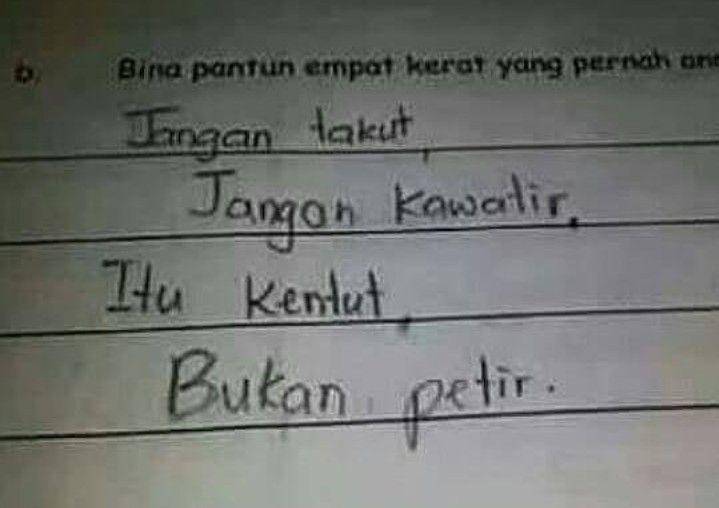 b. Bina pantun empat kerat yang pernah
Jangan takut,
Jangan kawatir.
Itu kentut,
Bukan petir.